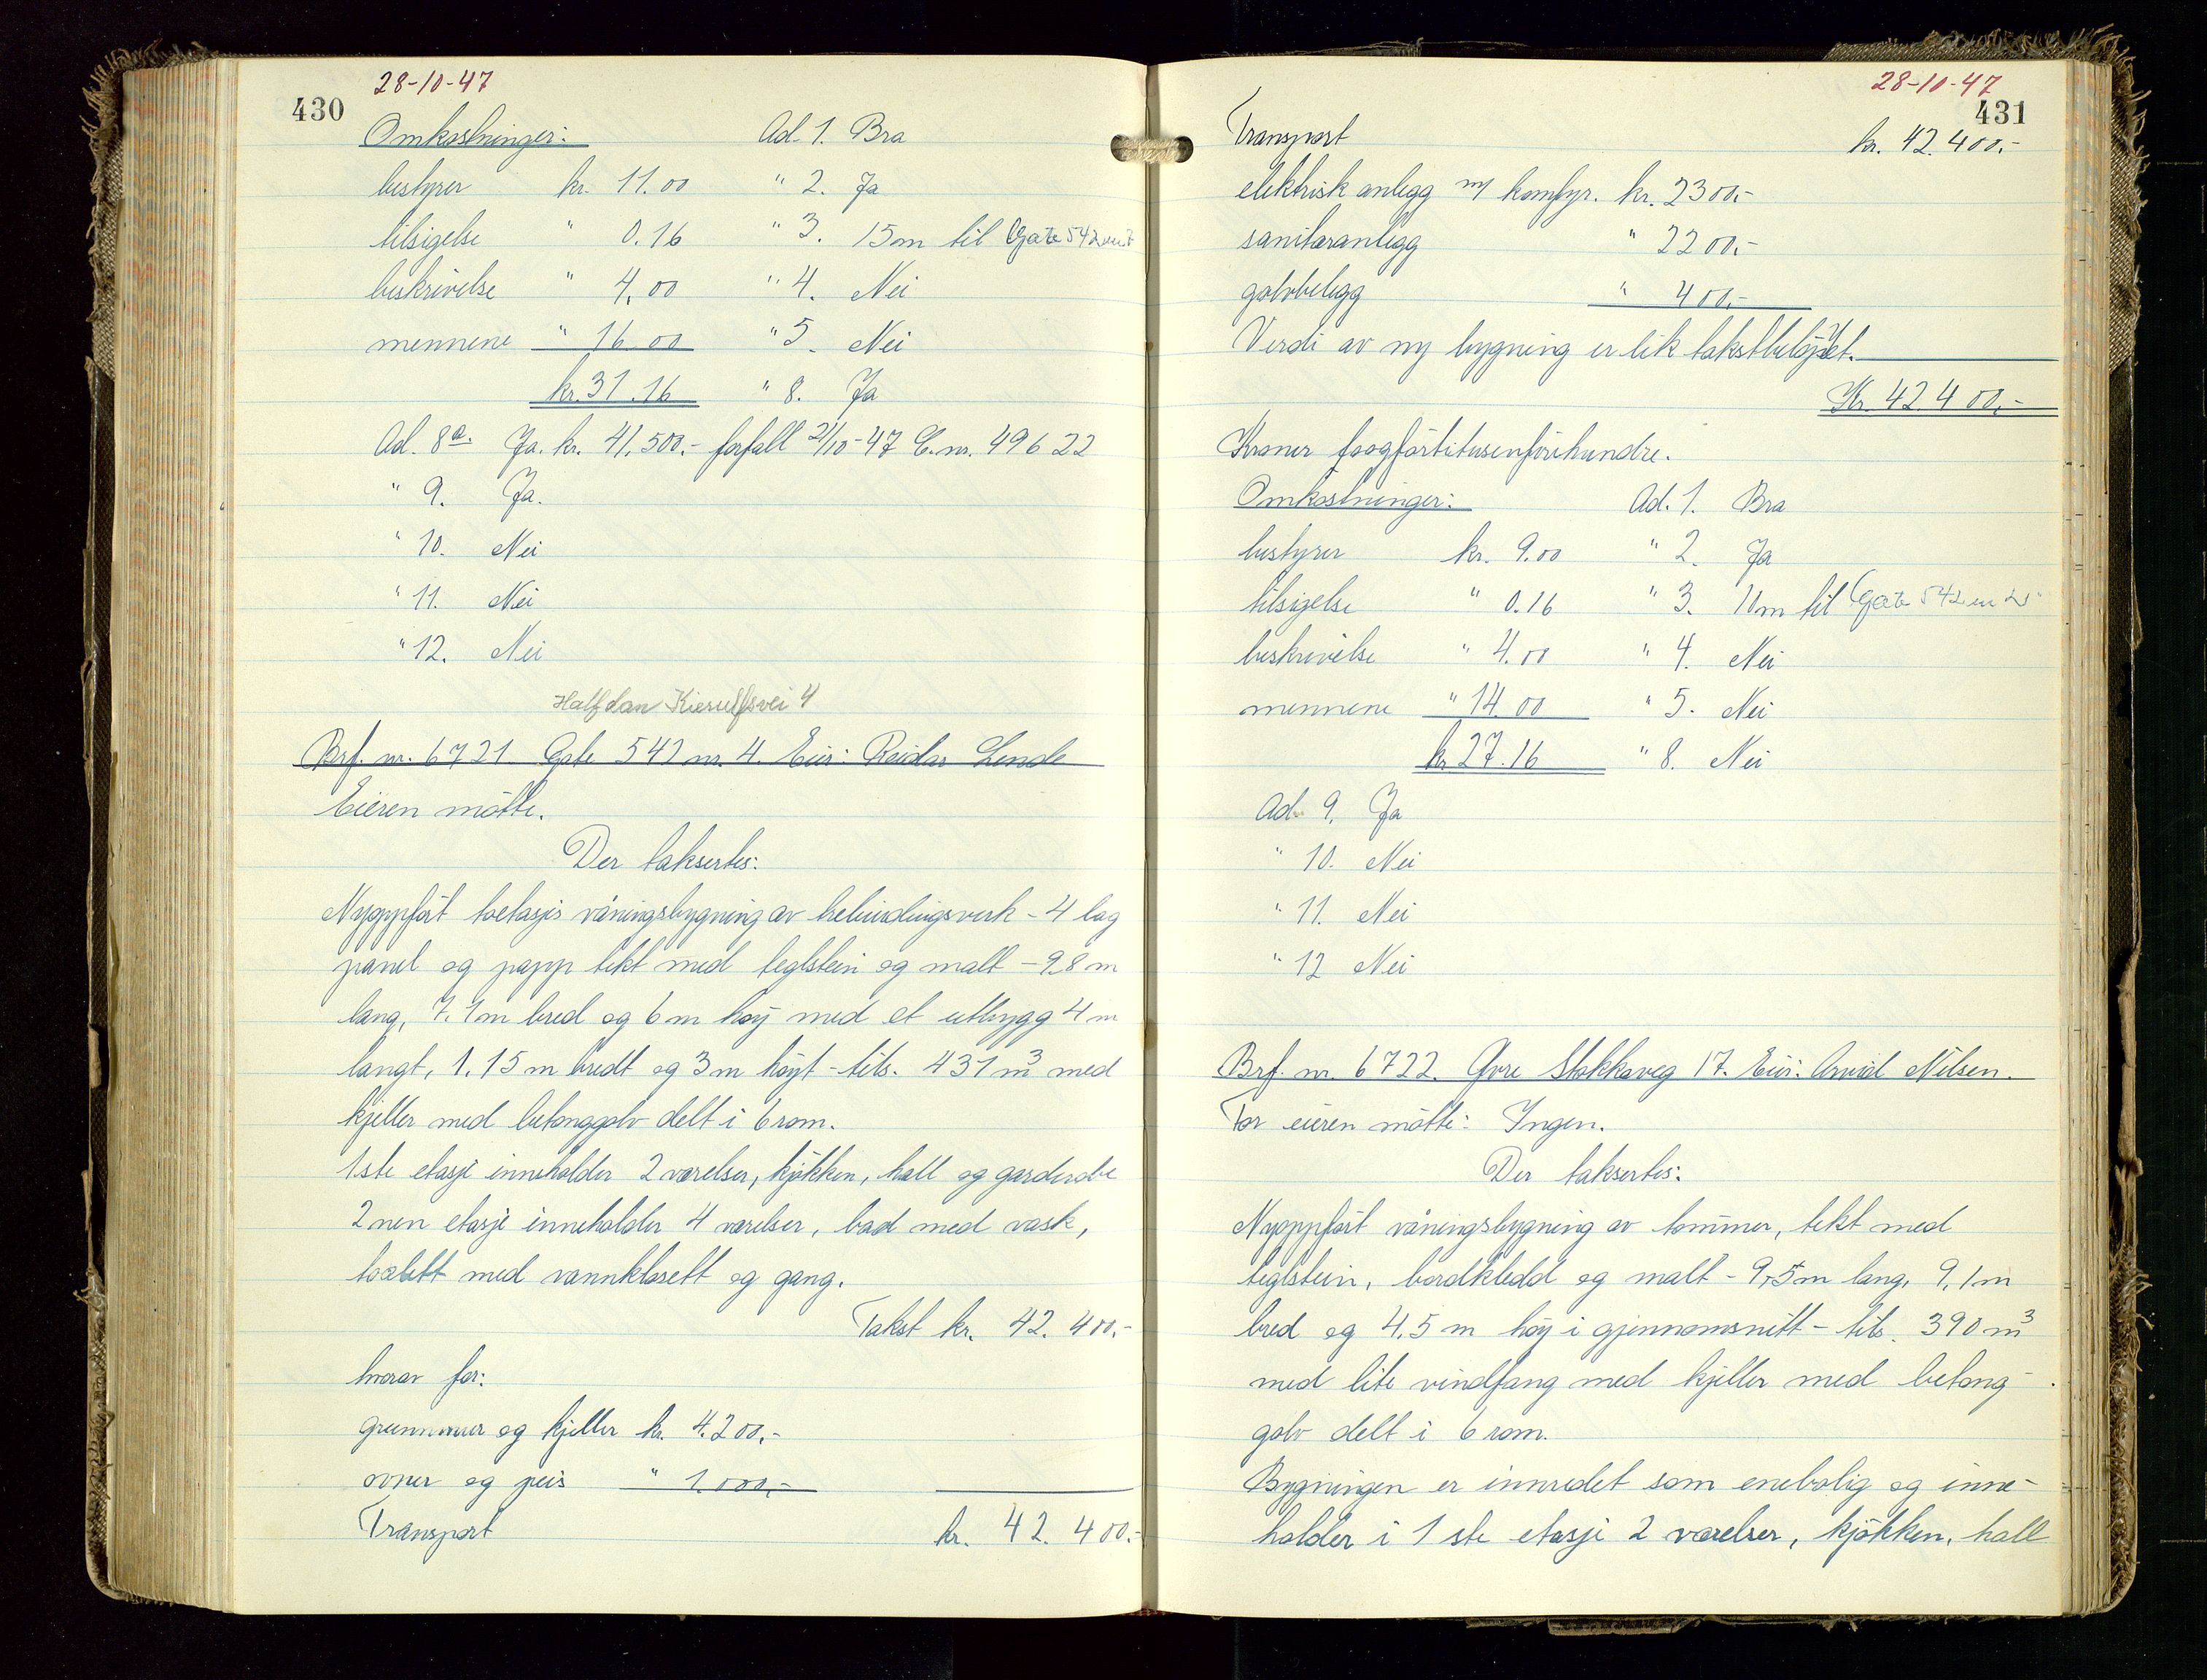 28-10-47
430
Omkostninger: Ad. 1. Bra
bestyrer kr. 11.00 " 2. Ja
tilsigelse " 0.16 " 3. 15m til Gate 542
beskrivelse " 4,00 " 4. Nei
mennene " 16.00 " 5. Nei
kr. 31.16 " 8. Ja
Ad. 8a. Ja. kr. 41,500.- forfall 21/10-47 C.nr. 49622
" 9. Ja.
" 10. Nei
" 11. Nei
" 12. Nei
Halfdan Kierulfsvei 4
Brf. nr. 6721 Gate 542 nr. 4. Eier: Reidar Lende
Eieren møtte.
Der taksertes:
Nyoppført toetasjes våningsbygning av bebindingsverk - 4 lag
panel og papp tekt med teglstein og malt - 9.8 m
lang, 7.1m bred og 6 m høy med et utbygg 4 m
langt, 1.15 m bredt og 3 m høyt - tils. 431 m3 med
kjeller med betonggolv delt i 6 rom.
1ste etasje inneholder 2 værelser, kjøkken, hall og garderobe
2nen etasje inneholder 4 værelser, bad med vask,
toalett med vannklosett og gang.
Takst kr. 42.400.-
hvorav for:
grunnmur og kjeller kr. 4.200.-
ovner og peis " 1.000,-
Transport kr. 42.400.-
28-10-47
431
Transport kr. 42.400.-
elektrisk anlegg m/ komfyr. kr. 2300.-
sanitæranlegg " 2200.-
golvbelegg " 400,-
Verdi av ny bygning er lik takstbeløpet.
Kr. 42.400,-
Kroner toogførtitusenfirehundre.
Omkostninger: Ad. 1. Bra
bestyrer kr. 9.00 " 2. Ja
tilsigelse " 0.16 " 3. 10m til Gate 542
beskrivelse " 4.00 " 4. Nei
mennene " 14.00 " 5. Nei
kr 27.16 " 8. Nei
Ad 9. Ja
" 10. Nei
" 11. Nei
" 12 Nei
Brf. nr. 6722. Øvre Stokkaveg 17. Eier: Arvid Nilsen.
For eieren møtte: Ingen.
Der taksertes:
Nyoppført våningsbygning av tømmer, tekt med
teglstein, bordkledd og malt - 9,5m lang, 9,1m
bred og 4,5 m høy i gjennomsnitt - tils. 390 m3
med lite vindfang med kjeller med betong-
golv delt i 6 rom.
Bygningen er innredet som enebolig og inne-
holder i 1 ste etasje 2 værelser, kjøkken, hall